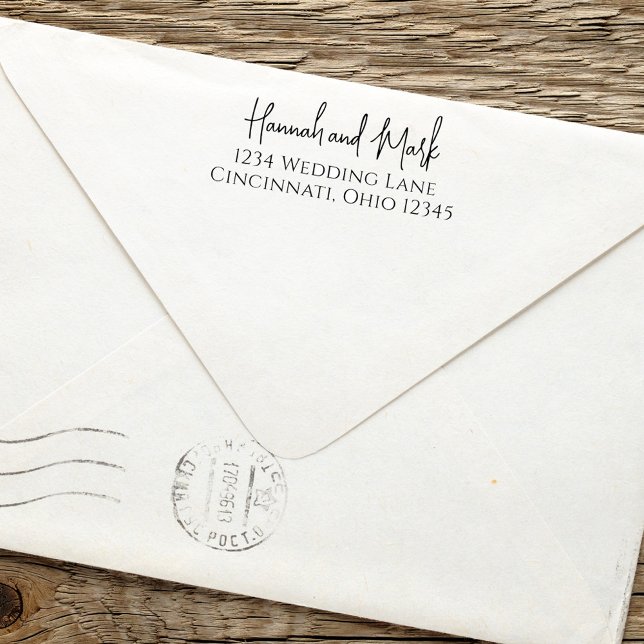 Hannah and Mark
1234 Wedding Lane
Cincinnati, Ohio 12345
17049613
РОСТ.О